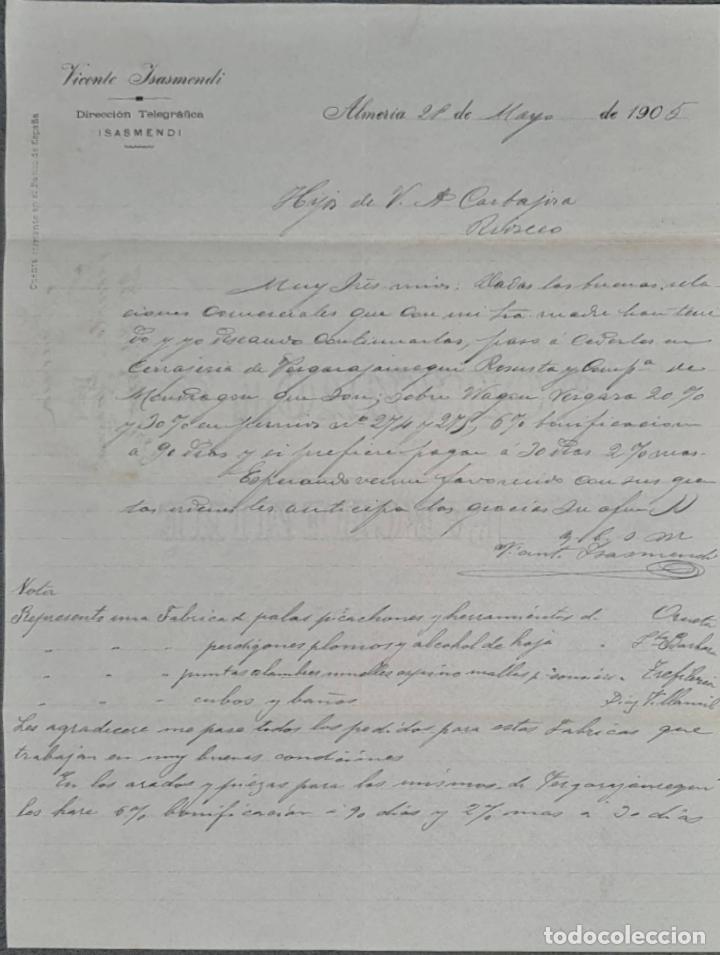 Vicente Isasmendi
Dirección Telegráfica
ISASMENDI
Cuenta corriente en el Banco de España
Almería 28 de Mayo de 1905
Hijos de V. A Carbajosa
Rioseco
Muy Sres mios: Dadas las buenas rela
ciones comerciales que con mi Sra madre han teni
do y yo deseando continuarlas, paso á cederlos en
Cerrajeria de Vergarajauregui Resusta y Compª de
Mondragon que son; sobre Wagon Vergara 20 %
y 30% en pernios nº 274 y 275, 6% bonificacion
a 90 dias y si prefiere pagar á 30 dias 2% mas.
Esperando verme favorecido con sus gra
tas ordenes les anticipa las gracias su afmo
q b s m
Vicente Isasmendi
Nota
Represento una Fabrica de palas picachones y herramientas de Orueta
" " " perdigones plomos y alcohol de hoja " Sta Barbara
" " " puntas alambres muelles espino mallas p. somiers " Trefileria
" " " cubos y baños Diaz Villamil
Les agradecere me pase todos los pedidos para estas Fabricas que
trabajan en muy buenas condiciónes
En los arados y piezas para los mismos de Vergarajauregui
les hare 6% bonificación á 90 dias y 2% mas á 30 dias
todocoleccion.net